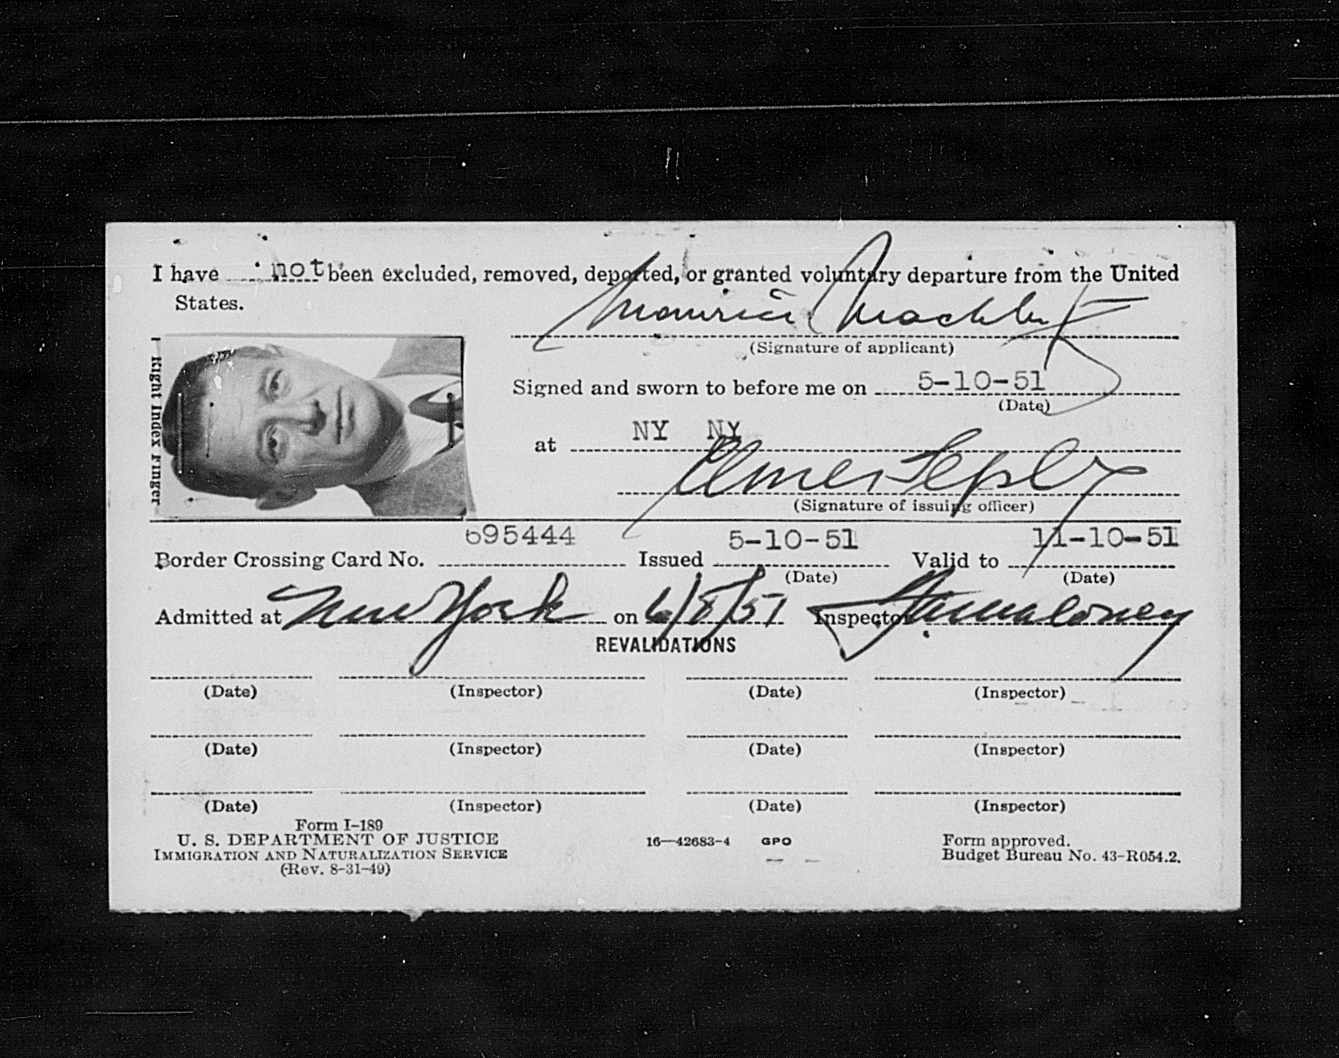 I have not been excluded, removed, deported, or granted voluntary departure from the United
States.
(Signature of applicant)
Right Index Finger
Signed and sworn to before me on 5-10-51
(Date)
at NY NY
(Signature of issuing officer)
Border Crossing Card No. 695444 Issued 5-10-51 Valid to 11-10-51
(Date) (Date)
Admitted at New York on 6/8/51 Inspector
REVALIDATIONS
(Date) (Inspector) (Date) (Inspector)
(Date) (Inspector) (Date) (Inspector)
(Date) (Inspector) (Date) (Inspector)
Form I-189
U. S. DEPARTMENT OF JUSTICE 16—42683-4 GPO Form approved.
IMMIGRATION AND NATURALIZATION SERVICE Budget Bureau No. 43-R054.2.
(Rev. 8-31-49)